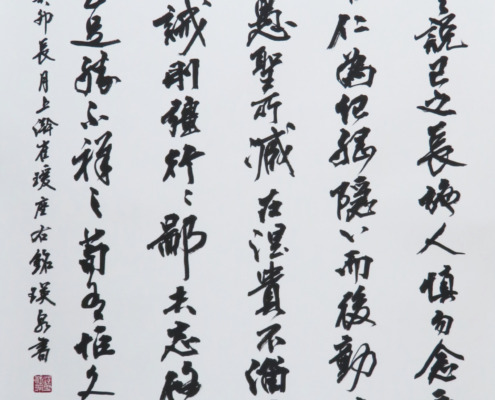 說己之長施人慎勿念
仁為紀綱隱心而後動
愚聖所臧在涅貴不淄
誡剛彊行〻鄙夫志悠
足勝不祥〻苟有恒久
卯長月上澣崔瑗座右銘瑛泉書